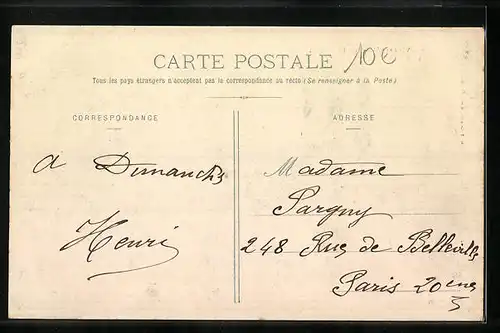 CARTE POSTALE
10€
Tous les pays étrangers n'acceptent pas la correspondance au recto (Se renseigner à la Poste)
CORRESPONDANCE
ADRESSE
a Dimanche
Henri
Madame
Sargny
248 Rue de Belleville
Paris 20ème